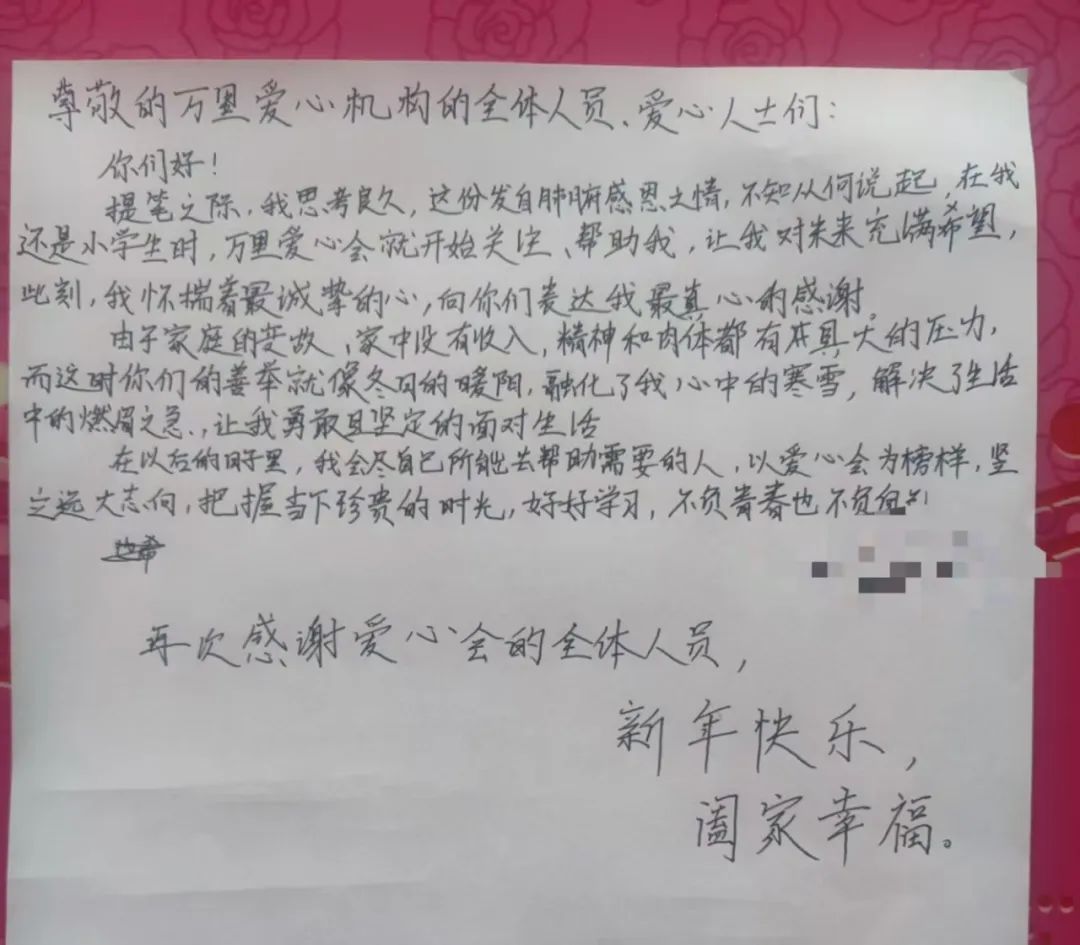 尊敬的万里爱心机构的全体人员、爱心人士们：
你们好！
提笔之际，我思考良久，这份发自肺腑感恩之情，不知从何说起，在我
还是小学生时，万里爱心会就开始关注、帮助我，让我对未来充满希望，
此刻，我怀揣着最诚挚的心，向你们表达我最真心的感谢。
由于家庭的变故，家中没有收入，精神和肉体都有大的压力，
而这时你们的善举就像冬日的暖阳，融化了我心中的寒雪，解决了生活
中的燃眉之急，让我勇敢且坚定的面对生活
在以后的日子里，我会尽自己所能去帮助需要的人，以爱心会为榜样，坚
立远大志向，把握当下珍贵的时光，好好学习，不负青春也不负自
再次感谢爱心会的全体人员，
新年快乐，
阖家幸福。